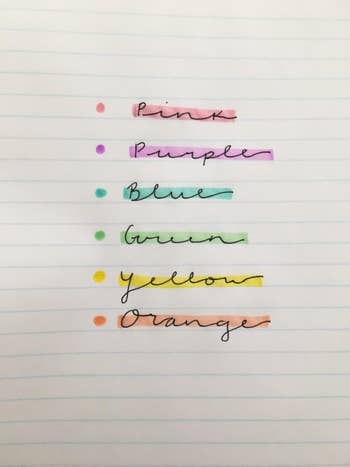 Pink
Purple
Blue
Green
Yellow
Orange